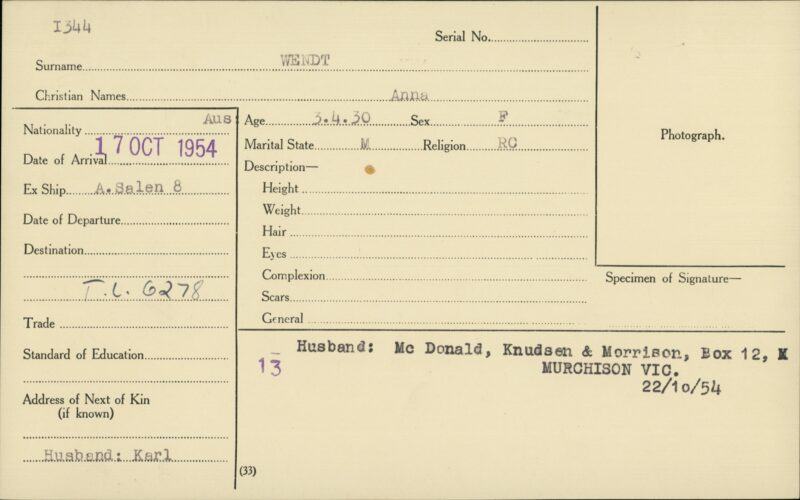 I344
Serial No.
Surname WENDT
Christian Names Anna
Nationality Aus
Date of Arrival 17 OCT 1954
Ex Ship A.Salen 8
Date of Departure
Destination
T.L. 6278
Trade
Standard of Education
Address of Next of Kin
(if known)
Husband: Karl
Age 3.4.30 Sex F
Marital State M Religion RC
Description—
Height
Weight
Hair
Eyes
Complexion
Scars
General
Photograph.
Specimen of Signature—
13
Husband: Mc Donald, Knudsen & Morrison, Box 12, M
MURCHISON VIC.
22/10/54
(33)